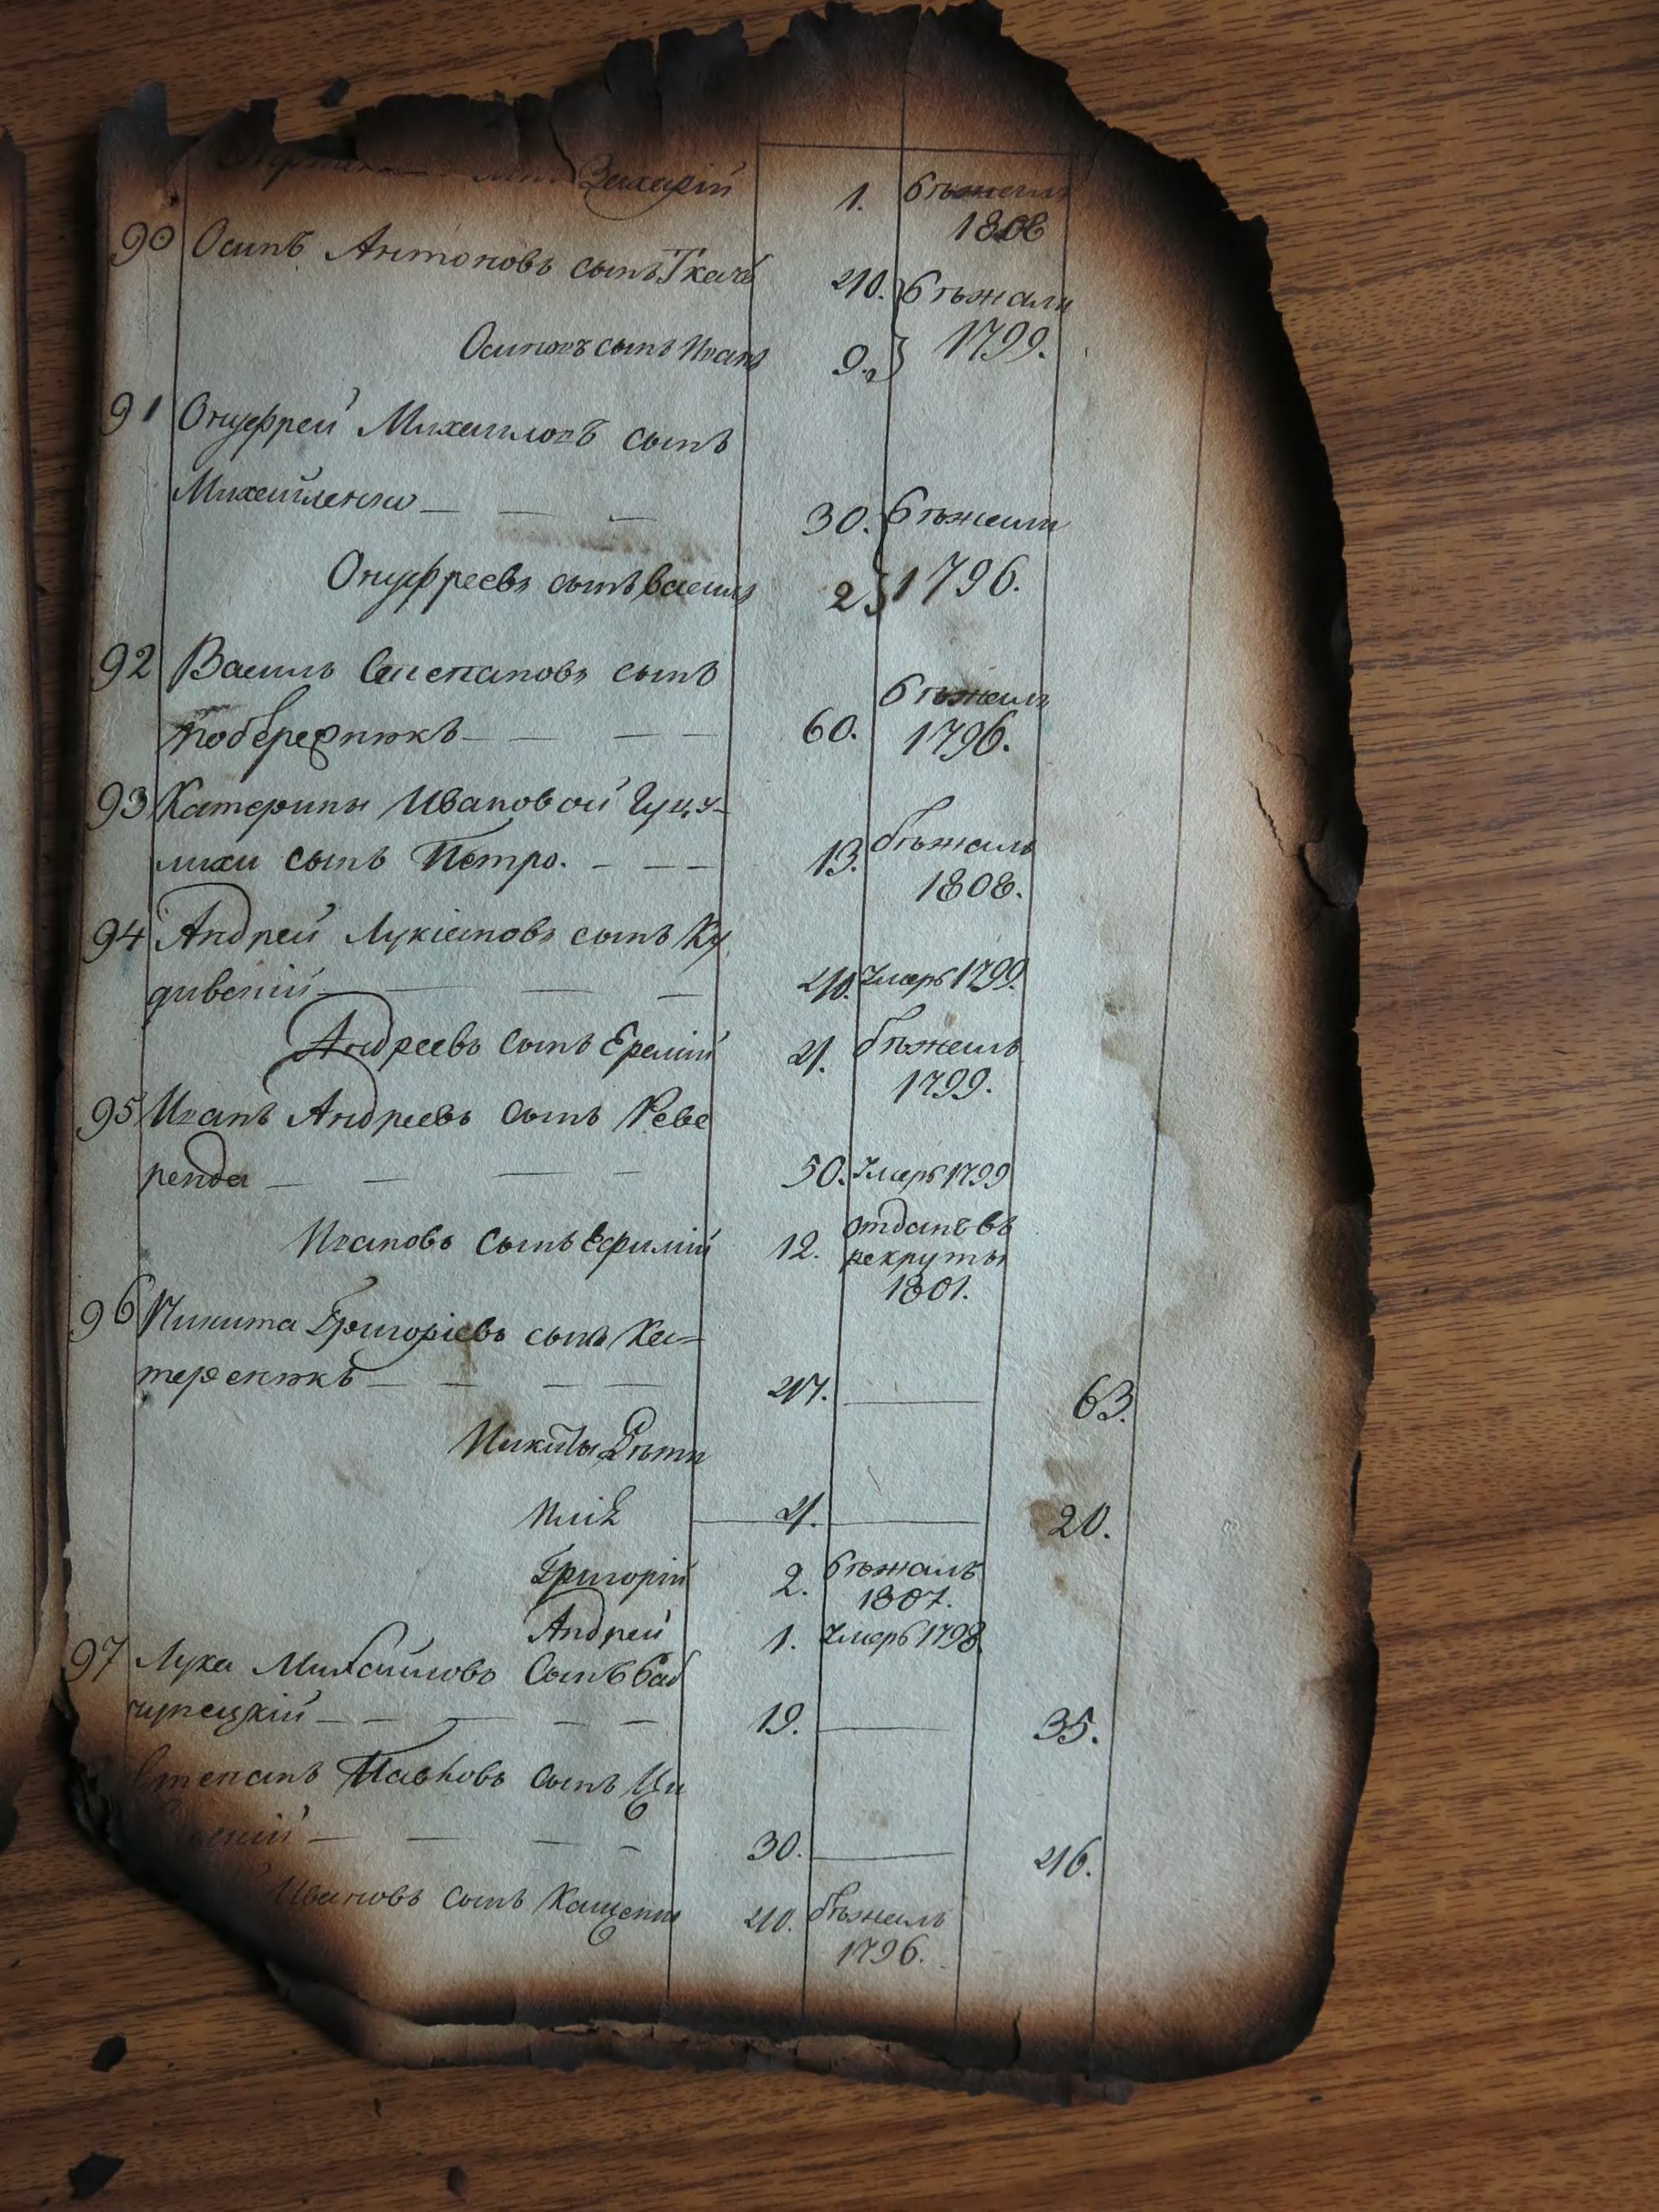 Захарій 1. бѣжалъ
1808
90 Осипъ Антоновъ сынъ Ткачъ 40. бѣжали
Осиповъ сынъ Иванъ 9. 1799.
91 Онуфрей Михайловъ сынъ
Михайленко 30. бѣжали
Онуфреевъ сынъ Василь 2 1796.
92 Василь Степановъ сынъ бѣжалъ
Побережникъ 60. 1796.
93 Катерины Ивановой Гуцу-
лихи сынъ Петро. 13. бѣжалъ
1808.
94 Андрей Лукіановъ сынъ Ку
дивскій 40. Умеръ 1799.
Андреевъ сынъ Еремій 4. бѣжалъ
1799.
95 Иванъ Андреевъ сынъ Реве
ренда 50. Умеръ 1799
Ивановъ сынъ Ефимій 12. отданъ въ
рекруты
1801.
96 Никита Григоріевъ сынъ Ка-
теренюкъ 47. 63.
Никиты Дѣти
Илія 4. 20.
Григорій 2. бѣжалъ
1807.
Андрей 1. Умеръ 1798.
97 Лука Михайловъ сынъ Баб
чинецкій 19. 35.
Степанъ Павловъ сынъ Ци
30. 46.
Ивановъ сынъ Кащенко 40. бѣжалъ
1796.